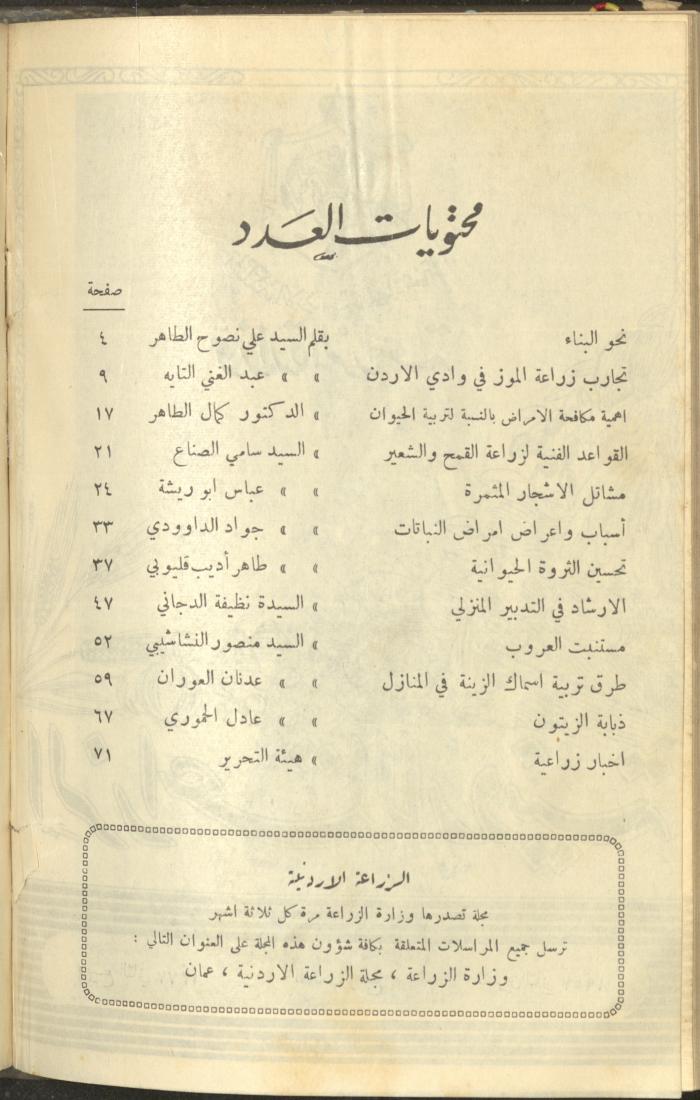 محتويات العدد
صفحة
نحو البناء بقلم السيد علي نصوح الطاهر ٤
تجارب زراعة الموز في وادي الاردن » » عبد الغني التايه ٩
اهمية مكافحة الامراض بالنسبة لتربية الحيوان » الدكتور كمال الطاهر ١٧
القواعد الفنية لزراعة القمح والشعير » السيد سامي الصناع ٢١
مشاتل الاشجار المثمرة » » عباس ابو ريشة ٢٤
أسباب واعراض امراض النباتات » » جواد الداوودي ٣٣
تحسين الثروة الحيوانية » » طاهر أديب قليوبي ٣٧
الارشاد في التدبير المنزلي » السيدة نظيفة الدجاني ٤٧
مستنبت العروب » السيد منصور النشاشيبي ٥٢
طرق تربية اسماك الزينة في المنازل » » عدنان العوران ٥٩
ذبابة الزيتون » » عادل الحموري ٦٧
اخبار زراعية » هيئة التحرير ٧١
الزراعة الاردنية
مجلة تصدرها وزارة الزراعة مرة كل ثلاثة اشهر
ترسل جميع المراسلات المتعلقة بكافة شؤون هذه المجلة على العنوان التالي :
وزارة الزراعة ، مجلة الزراعة الاردنية ، عمان